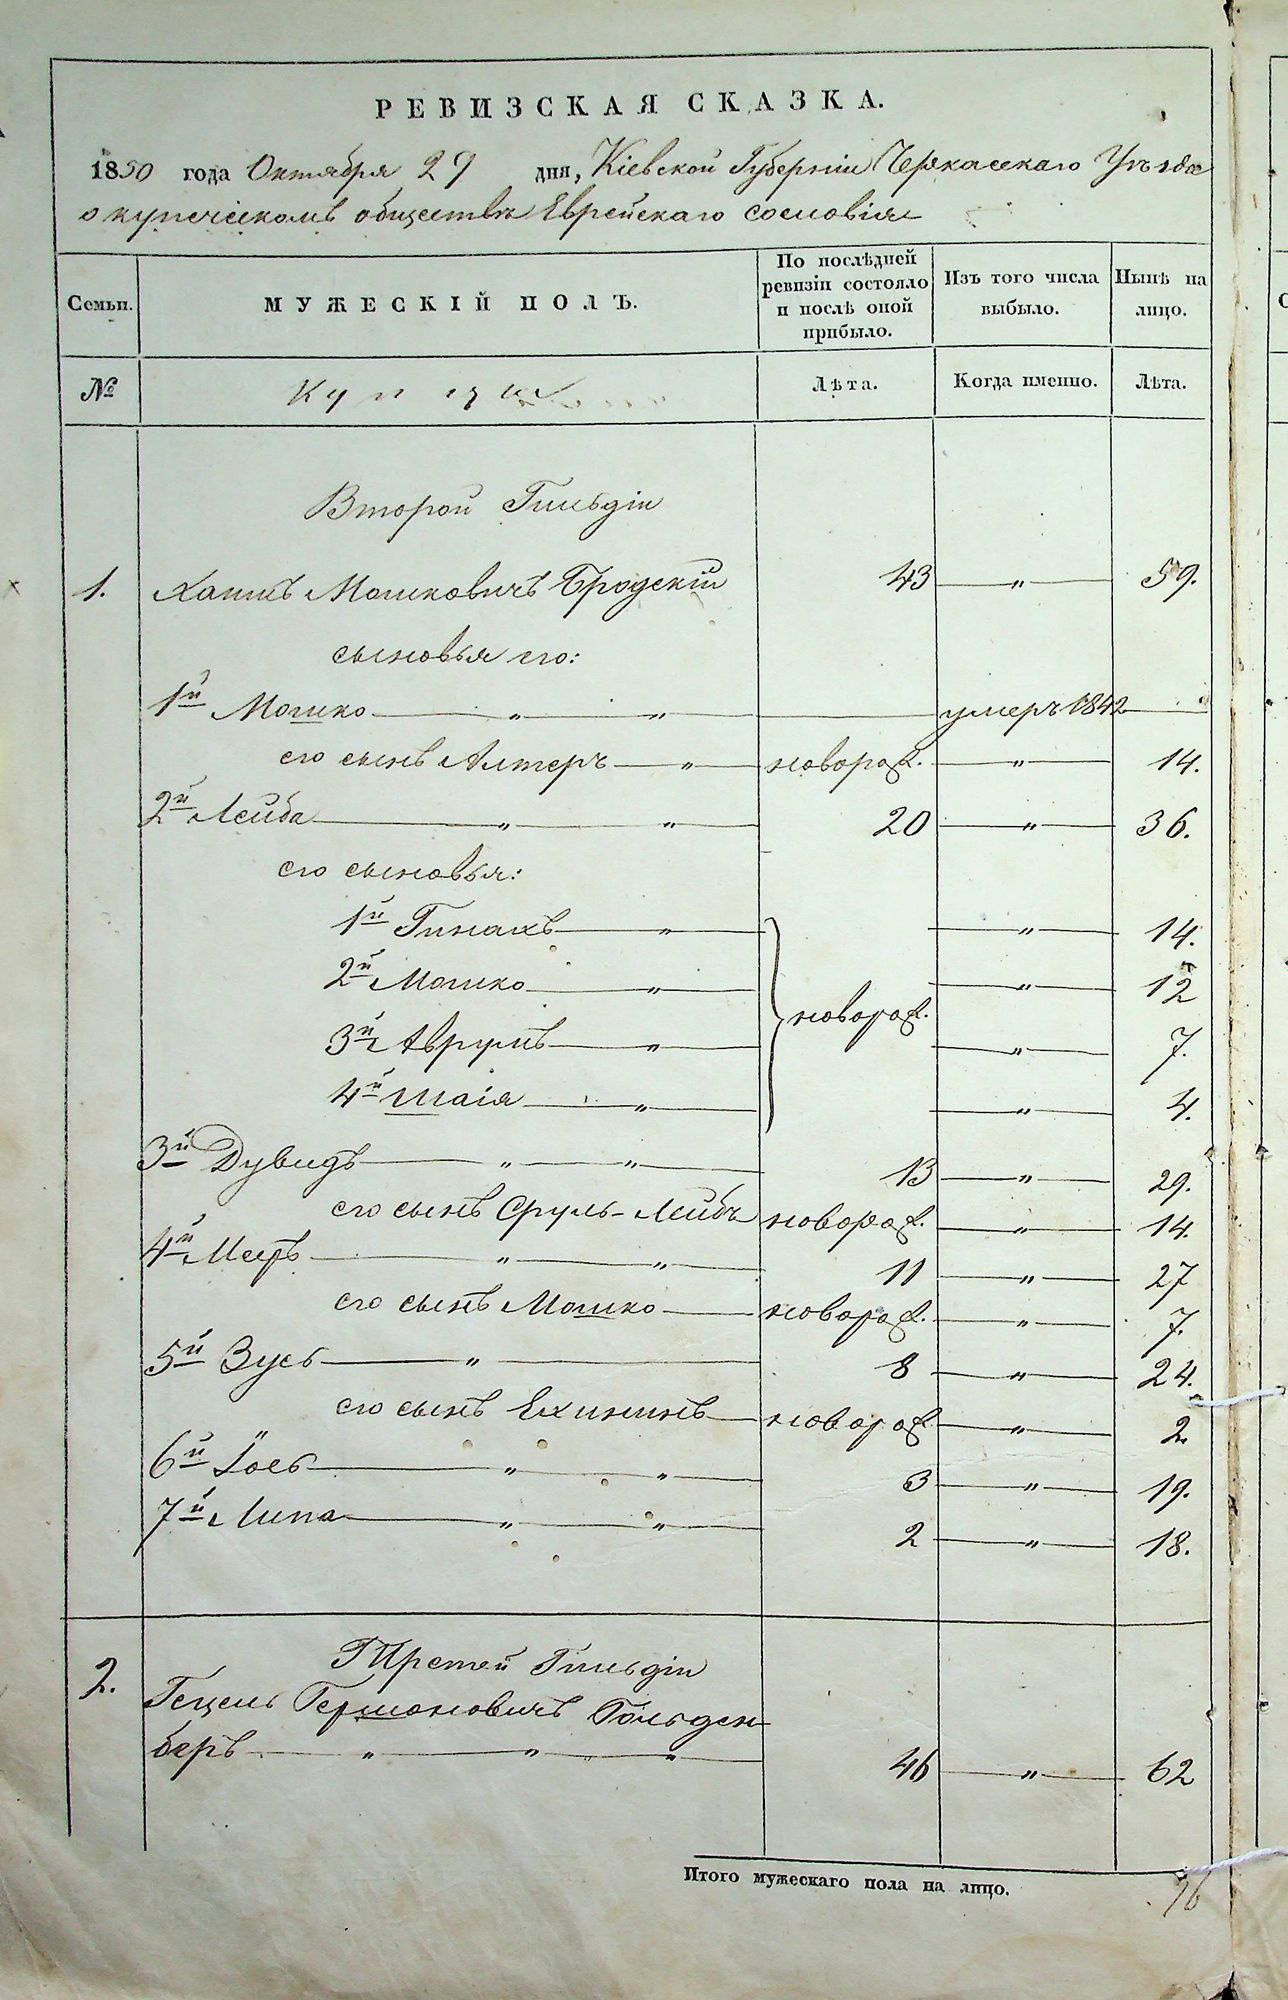 РЕВИЗСКАЯ СКАЗКА.
1850 года Октября 29 дня, Кіевской Губерніи Черкасскаго Уѣзда
о купеческомъ обществѣ Еврейскаго сословія
Семьи. МУЖЕСКІЙ ПОЛЪ. По послѣдней ревизіи состояло и послѣ оной прибыло. Изъ того числа выбыло. Нынѣ на лицо.
№ Купцы Лѣта. Когда именно. Лѣта.
Второй Гильдіи
1. Хаимъ Мошковичъ Бродскій 43 — " — 59.
сыновья его:
1й Мошко — " — " — умеръ 1842
его сынъ Алтеръ — " — новорож. — " — 14.
2й Лейба — " — " — 20 — " — 36.
его сыновья:
1й Пинахъ — " — — " — 14.
2й Мошко — " — новорож. — " — 12
3й Аврумъ — " — — " — 7.
4й Шаія — " — — " — 4.
3й Дувидъ — " — " — 13 — " — 29.
его сынъ Сруль-Лейбъ новорож. — " — 14.
4й Мееръ — " — " — 11 — " — 27
его сынъ Мошко — новорож. — " — 7.
5й Зусь — " — 8 — " — 24.
его сынъ Ехининъ — новорож — " — 2.
6й Іось — " — " — 3 — " — 19.
7й Липа — " — " — 2 — " — 18.
Третей Гильдіи
2. Гецель Гершоновичъ Гольден-
беръ — " — " — " — 46 — " — 62
Итого мужескаго пола на лицо. 16